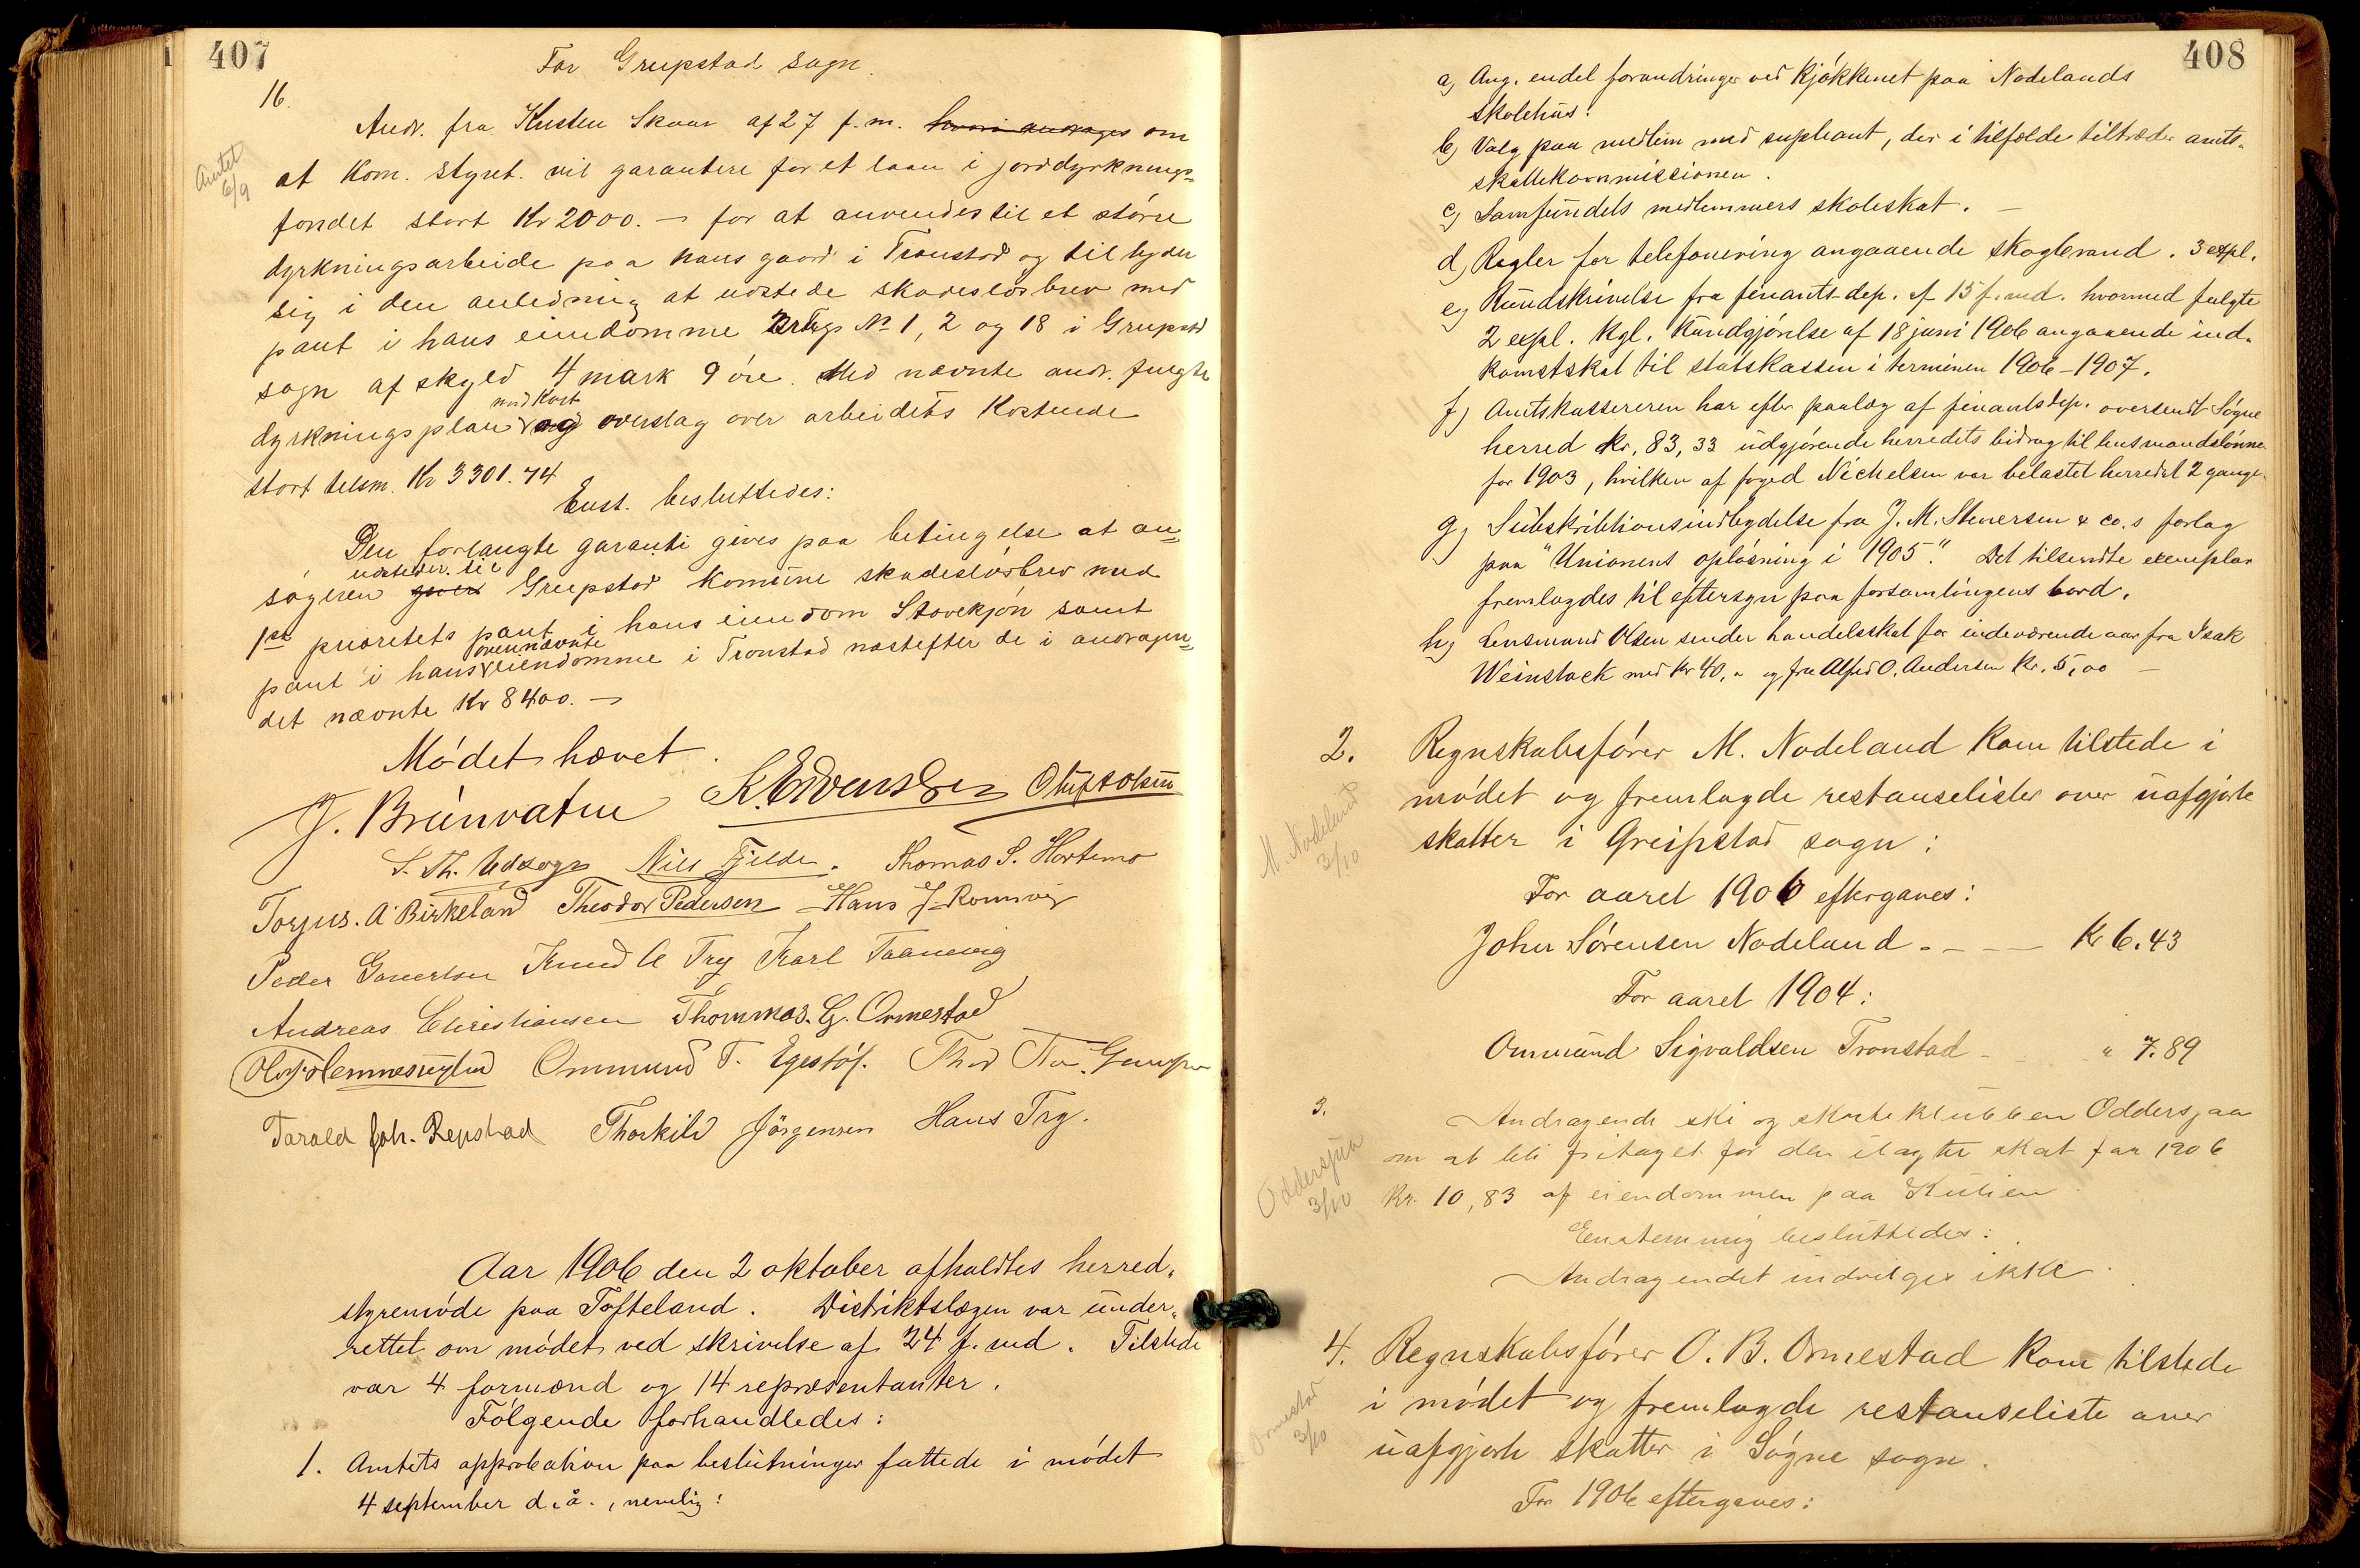 407
For Greipstad sogn.
16.
Andr. fra Kristen Skaar af 27 f. m. hvori andrages om
Amtet
6/9
at Kom. styret. vil garantere for et laan i jorddyrknings-
fondet stort Kr 2000. — for at anvendes til et större
dyrkningsarbeide paa hans gaard i Tronstad og tilbyder
sig i den anledning at udstede skadeslösbrev med
pant i hans eiendomme Brugs No 1, 2 og 18 i Greipstad
sogn af skyld 4 mark 9 öre. Med nævnte andr. fulgte
med Kart
dyrkningsplan og overslag over arbeidets Kostende
stort tilsm. Kr 3301.74
Enst. besluttedes:
Den forlangte garanti gives paa betingelse at an-
udsteder til
sögeren giver Greipstad Komune skadeslösbrev med
1ste prioritets pant i hans eiendom Stovekjön samt
ovennævnte
pant i hans eiendomme i Tronstad næstefter de i andragen-
det nævnte Kr 8400. —
Mödet hævet.
J. Brunvatne K. Edvensen Oluf Olsen
S. Th. Udsogn Nils Fjelde. Thomas S. Hortemo
Torjus. A. Birkeland Theodor Pedersen Hans J. Romsvig
Peder Gauertsen Knud A Try Karl Taanevig
Andreas Christiansen Thommas. G. Ormestad
Ole F. Hennesrygtud Ommund T. Egestöl. Thod
Tarald Joh. Repstad Thorkild Jörgensen Hans Try.
Aar 1906 den 2 oktober afholdtes herred-
styremöde paa Tofteland. Distriktslægen var under-
rettet om mödet ved skrivelse af 24 f. md. Tilstede
var 4 formænd og 14 repræsentanter.
Fölgende forhandledes:
1. Amtets approbation paa beslutninger fattede i mödet
4 september d. å., nemlig:
408
a) Ang. endel forandringer ved Kjökkenet paa Nodelands
skolehus.
b) Valg paa medlem med supleant, der i tilfælde tiltræder amts-
skattekommissionen.
c) Samfundets medlemmers skoleskat. —
d) Regler for telefonering angaaende skogbrand. 3 expl.
e) Rundskrivelse fra finants-dep. af 15 f. md. hvormed fulgte
2 expl. Kgl. Kundgjörelse af 18 juni 1906 angaaende ind-
komstskat til statskassen i terminen 1906–1907.
f) Amtskassereren har efter paalæg af finantsdep. oversendt Sögne
herred Kr. 83,33 udgjörende herredets bidrag til lensmandslönnen
for 1903, hvilken af foged Nichelsen var belastet herredet 2 gange.
g) Subskribtionsindbydelse fra J. M. Stenersen & co.s forlag
paa "Unionens oplösning i 1905." Det tilsendte exemplar
fremlagdes til eftersyn paa forsamlingens bord.
h) Lensmand Olsen sender handelsskat for indeværende aar fra Isak
Weinstock med Kr 40, " og fra Alfred O. Andersen Kr. 5,00 —
2. Regnskabsförer M. Nodeland Kom tilstede i
M. Nodeland
3/10
mödet og fremlagde restanselister over uafgjorte
skatter i Greipstad sogn:
For aaret 1906 eftergaves:
John Sörensen Nodeland - - - — Kr 6.43
For aaret 1904:
Ommund Sigvaldsen Tronstad - - " 7.89
3.
Andragende ski og sköiteklubben Oddersjaa
Oddersjaa
3/10
om at bli fritaget for den ilagte skat for 1906
Kr. 10,83 af eiendommen paa Kulien
Enstemmig besluttedes:
Andragendet indvilges ikke.
4. Regnskabsförer O. B. Ormestad Kom tilstede
Ormestad
3/10
i mödet og fremlagde restanseliste over
uafgjorte skatter i Sögne sogn.
For 1906 eftergaves: